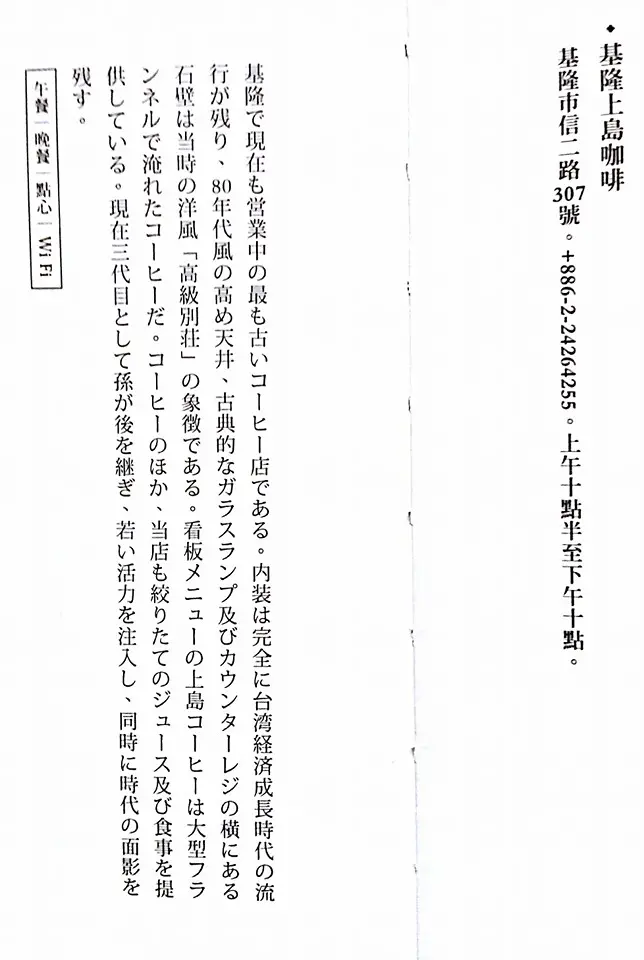 ◆基隆上島咖啡
基隆市信二路307號。+886-2-24264255。上午十點半至下午十點。
基隆で現在も営業中の最も古いコーヒー店である。内装は完全に台湾経済成長時代の流
行が残り、80年代風の高め天井、古典的なガラスランプ及びカウンターレジの横にある
石壁は当時の洋風「高級別荘」の象徴である。看板メニューの上島コーヒーは大型フラ
ンネルで淹れたコーヒーだ。コーヒーのほか、当店も絞りたてのジュース及び食事を提
供している。現在三代目として孫が後を継ぎ、若い活力を注入し、同時に時代の面影を
残す。
午餐｜晚餐｜點心｜Wi Fi